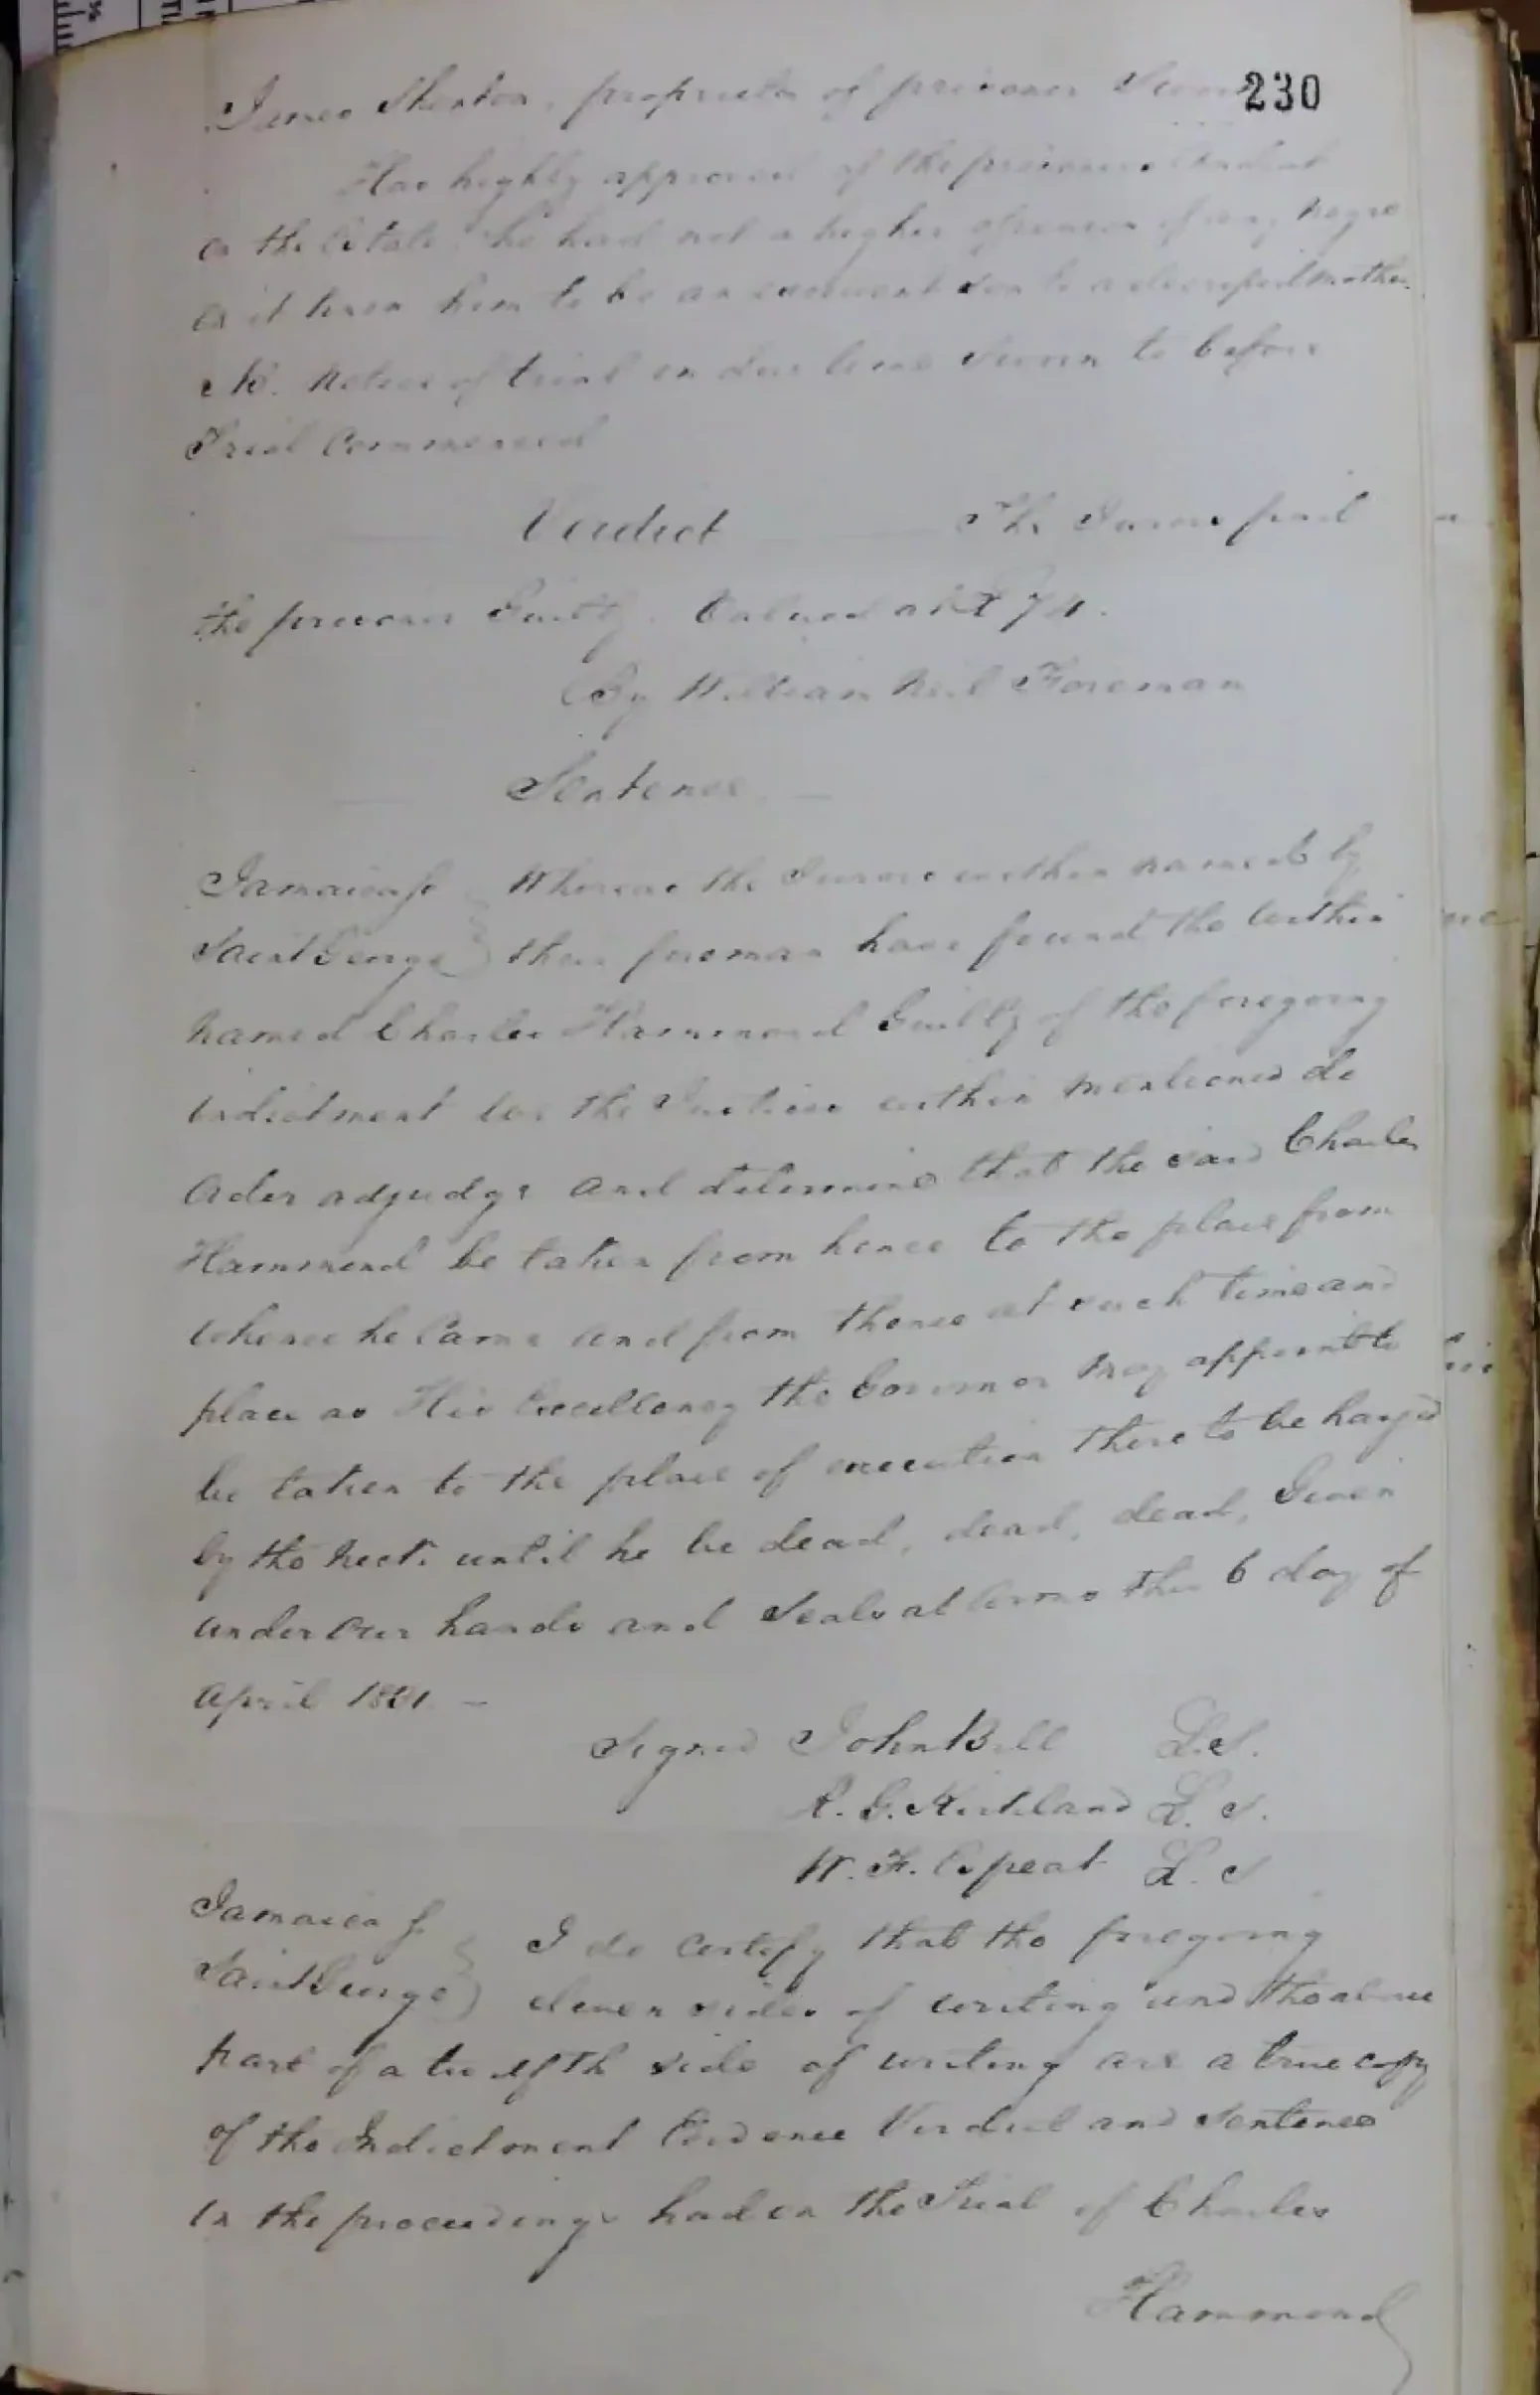 230
James Shenton, proprietor of prisoner Sworn
Has highly approved of the prisoners Conduct
on the Estate, he had not a higher opinion of any negro
on it knew him to be an excellent son to a decrepid mother
NB. Notice of trial in due time Sworn to before
Trial Commenced
Verdict The Jurors find
the prisoner Guilty. Valued at £70.
By William Neil Foreman
Sentence
Jamaica Whereas the Jurors within named by
Saint George their foreman have found the within
named Charles Hammond Guilty of the foregoing
indictment We the Justices within mentioned do
Order adjudge and determine that the said Charles
Hammond be taken from hence to the place from
whence he Came and from thence at such time and
place as His Excellency the Governor may appoint to
be taken to the place of execution there to be hanged
by the neck until he be dead, dead, dead, Given
under Our hands and Seals at this 6 day of
April 1831. —
Signed John Bell L.S.
R. G. Kirkland L. S.
W. F. Espeut L. S
Jamaica
Saint George I do certify that the foregoing
eleven sides of writing and the above
part of a twelfth side of writing are a true copy
of the Indictment Evidence Verdict and Sentence
in the proceedings had on the Trial of Charles
Hammond